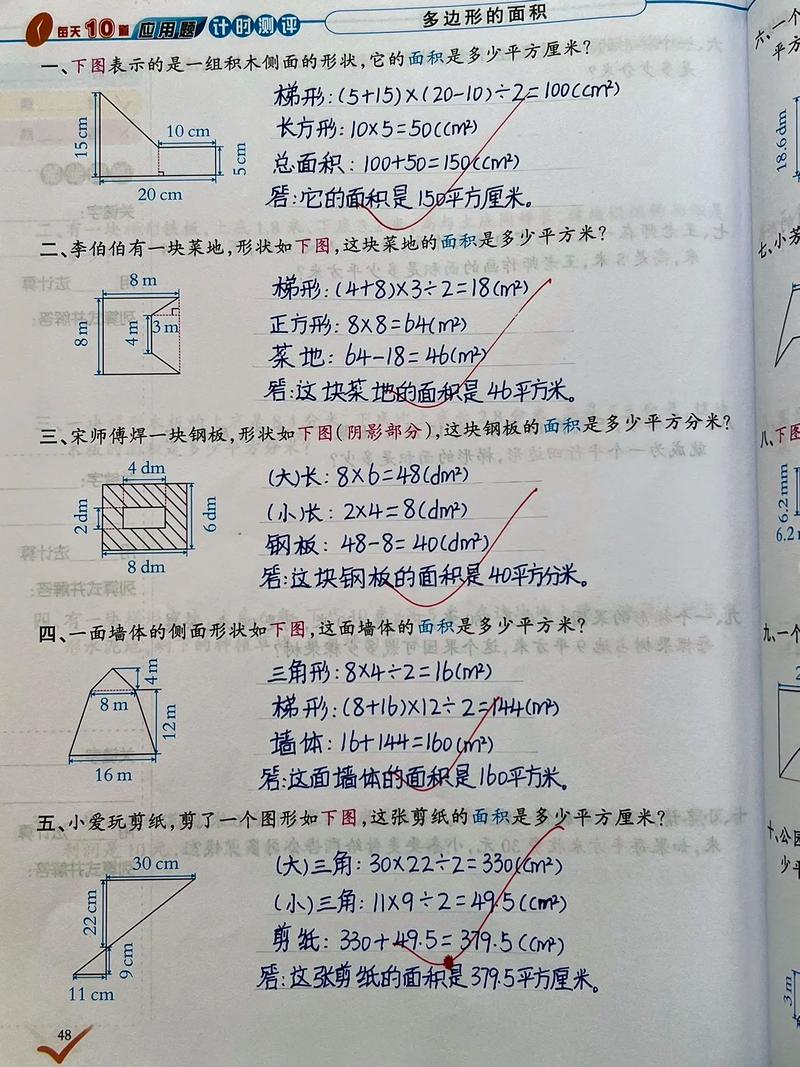 每天10道 应用题 计时测评
多边形的面积
一、下图表示的是一组积木侧面的形状，它的面积是多少平方厘米？
15 cm
10 cm
5 cm
20 cm
梯形：(5+15)×(20-10)÷2=100(cm²)
长方形：10×5=50(cm²)
总面积：100+50=150(cm²)
答：它的面积是150平方厘米。
二、李伯伯有一块菜地，形状如下图，这块菜地的面积是多少平方米？
8 m
8 m
4 m
3 m
梯形：(4+8)×3÷2=18(m²)
正方形：8×8=64(m²)
菜地：64-18=46(m²)
答：这块菜地的面积是46平方米。
三、宋师傅焊一块钢板，形状如下图(阴影部分)，这块钢板的面积是多少平方分米？
4 dm
2 dm
6 dm
8 dm
(大)长：8×6=48(dm²)
(小)长：2×4=8(dm²)
钢板：48-8=40(dm²)
答：这块钢板的面积是40平方分米。
四、一面墙体的侧面形状如下图，这面墙体的面积是多少平方米？
4 m
8 m
12 m
16 m
三角形：8×4÷2=16(m²)
梯形：(8+16)×12÷2=144(m²)
墙体：16+144=160(m²)
答：这面墙体的面积是160平方米。
五、小爱玩剪纸，剪了一个图形如下图，这张剪纸的面积是多少平方厘米？
30 cm
22 cm
9 cm
11 cm
(大)三角：30×22÷2=330(cm²)
(小)三角：11×9÷2=49.5(cm²)
剪纸：330+49.5=379.5(cm²)
答：这张剪纸的面积是379.5平方厘米。
48
六、一个
平方
18.6 dm
七、小芳
八、下图
6.2 mm
6.2
九、一个
2
十、公园
少平
3 m